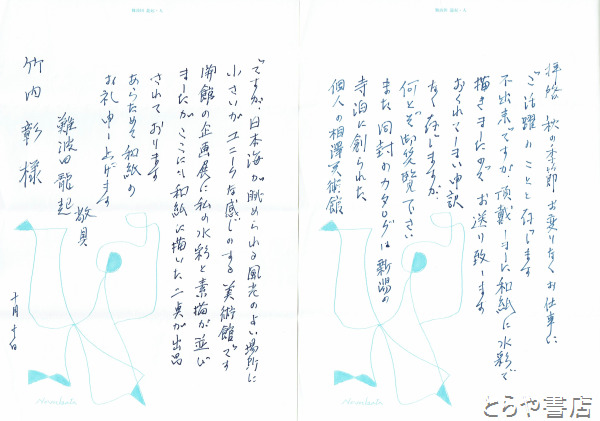 拝啓 秋の季節 お変りなくお仕事に
ご活躍のことと存じます
不出来ですが頂戴しました和紙に水彩で
描きましたので お送り致します
おくれてしまい申訳
なく存じますが
何とぞ御笑覧下さい
また同封のカタログは新潟の
寺泊に創られた
個人の相澤美術館
ですが、日本海が眺められる風光のよい場所に
小さいがユニークな感じのする美術館です
開館の企画展に私の水彩と素描が並び
ましたがここにも和紙に描いた二点が出品
されております
あらためて和紙の
お礼申し上げます
敬具
難波田龍起
竹内彰様
十月十日
Nambata
Nambata
とらや書店